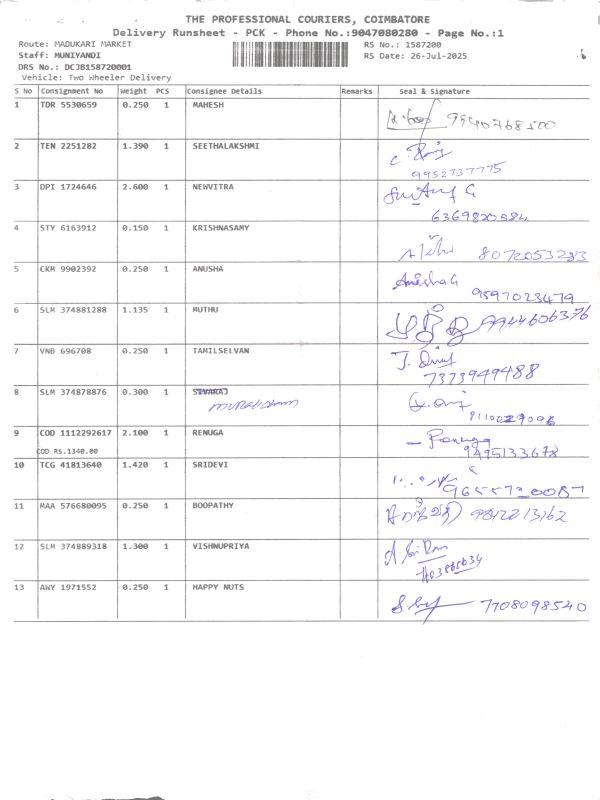 THE PROFESSIONAL COURIERS, COIMBATORE
Delivery Runsheet - PCK - Phone No.:9047080280 - Page No.:1
Route: MADUKARI MARKET RS No.: 1587200
Staff: MUNIYANDI RS Date: 26-Jul-2025
DRS No.: DCJB158720001
Vehicle: Two Wheeler Delivery
S No Consignment No Weight PCS Consignee Details Remarks Seal & Signature
1 TDR 5530659 0.250 1 MAHESH
2 TEN 2251282 1.390 1 SEETHALAKSHMI
9952737775
3 DPI 1724646 2.600 1 NEWVITRA
6369820584
4 STY 6163912 0.150 1 KRISHNASAMY
8072053283
5 CKM 9902392 0.250 1 ANUSHA
9597023479
6 SLM 374881288 1.135 1 MUTHU 9944606376
7 VNB 696708 0.250 1 TAMILSELVAN
7373949488
8 SLM 374878876 0.300 1 SIVARAJ
9 COD 1112292617 2.100 1 RENUGA Renuga
COD RS.1340.00 9495133678
10 TCG 41813640 1.420 1 SRIDEVI
11 MAA 576680095 0.250 1 BOOPATHY 9842213162
12 SLM 374889318 1.300 1 VISHNUPRIYA
13 AWY 1971552 0.250 1 HAPPY NUTS
7708098540